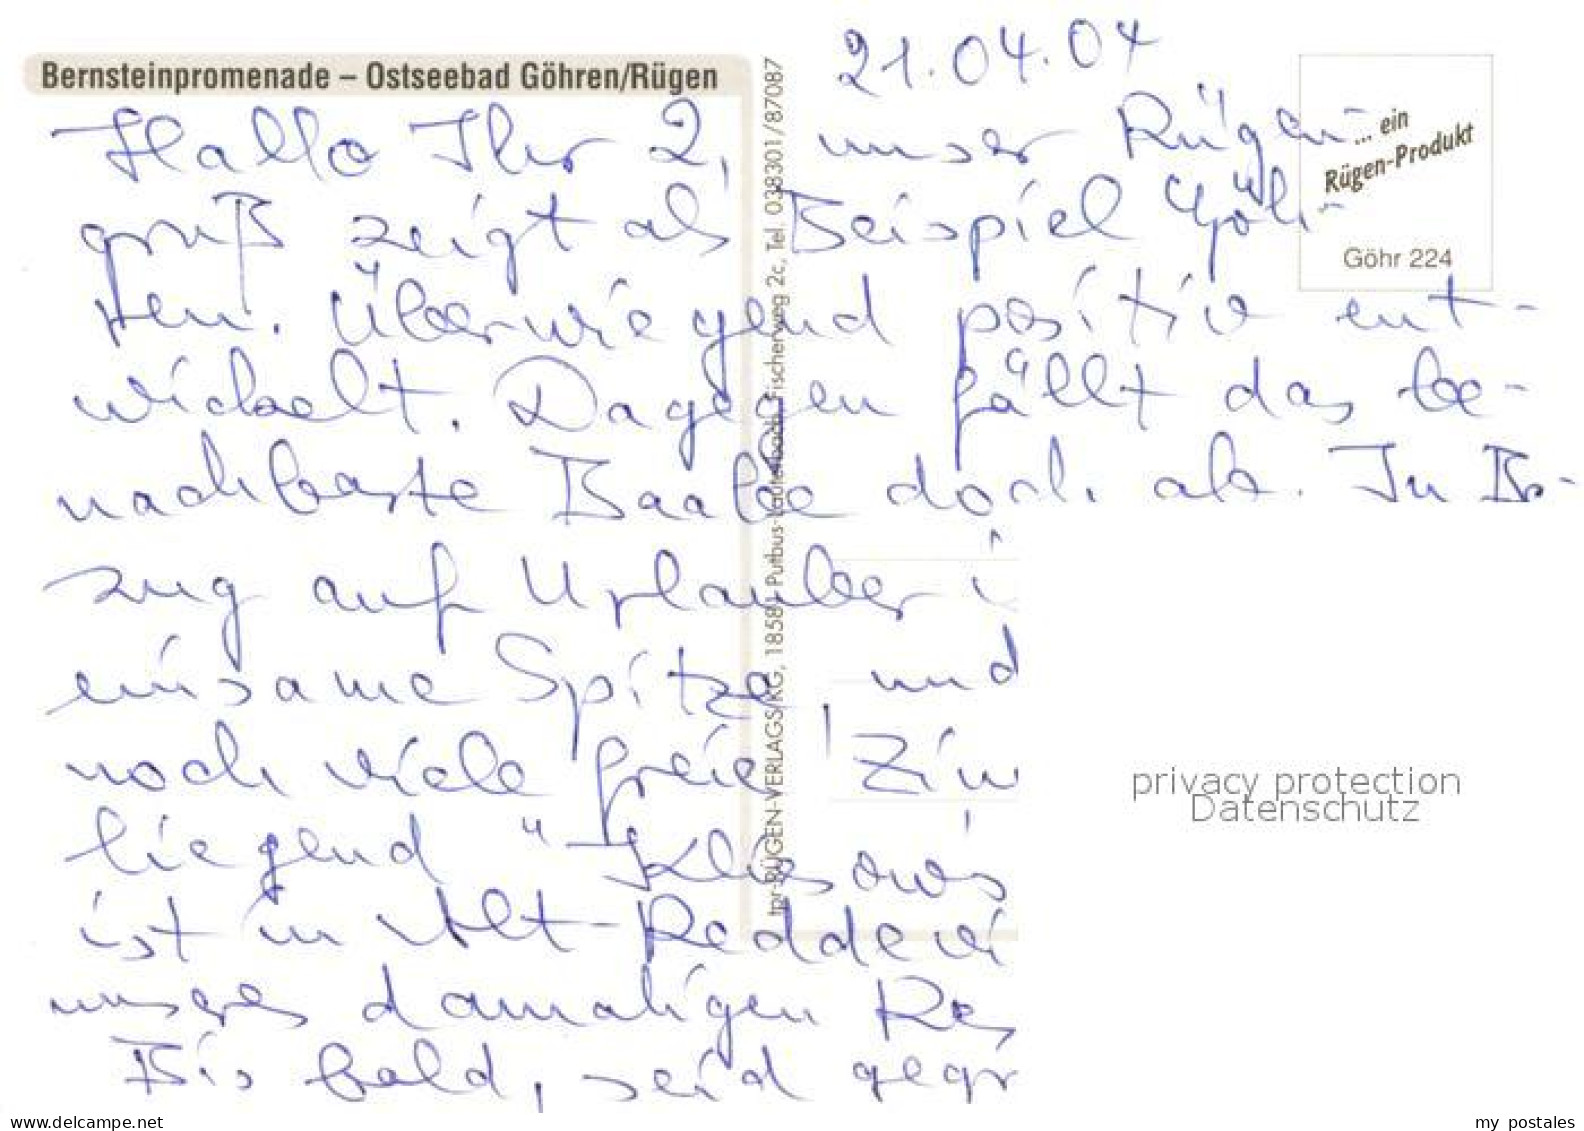 Bernsteinpromenade – Ostseebad Göhren/Rügen
21.04.04
Hallo Ihr 2, unser Rügen-
gruß zeigt als Beispiel Göh-
ren. Überwiegend positiv ent-
wickelt. Dagegen fällt das be-
nachbarte Baabe doch ab. In Be-
zug auf Urlauber i
einsame Spitze und
noch viele freie Zim
liegend "
ist in Alt-Reddevi
unseres damaligen Res
Bis bald, seid gegr
tpr-RÜGEN-VERLAGS/KG, 18581 Putbus-Lauterbach, Fischerweg 2c, Tel. 038301/87087
... ein
Rügen-Produkt
Göhr 224
privacy protection
Datenschutz
www.delcampe.net
my postales